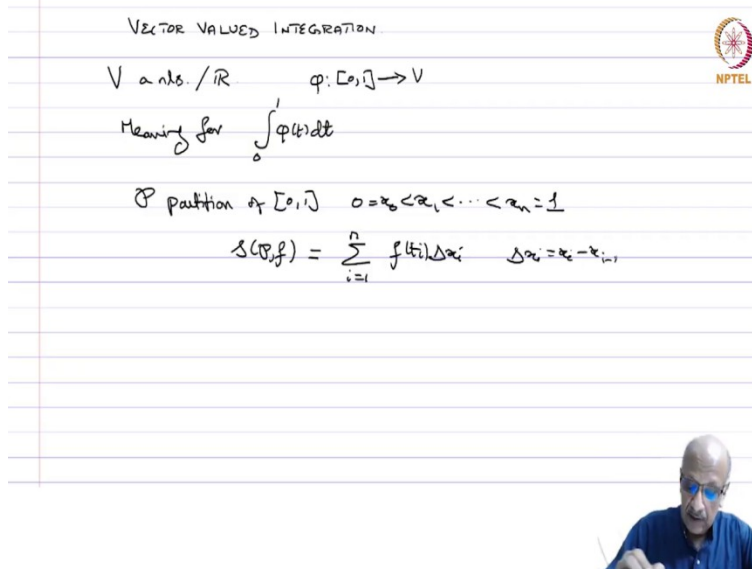 VECTOR VALUED INTEGRATION.
V a nls. / ℝ φ: [0,1] → V
Meaning for ∫₀¹ φ(t)dt
𝒫 partition of [0,1] 0 = x₀ < x₁ < ⋯ < xₙ = 1
S(𝒫,f) = ∑ᵢ₌₁ⁿ f(tᵢ)Δxᵢ Δxᵢ = xᵢ - xᵢ₋₁
NPTEL